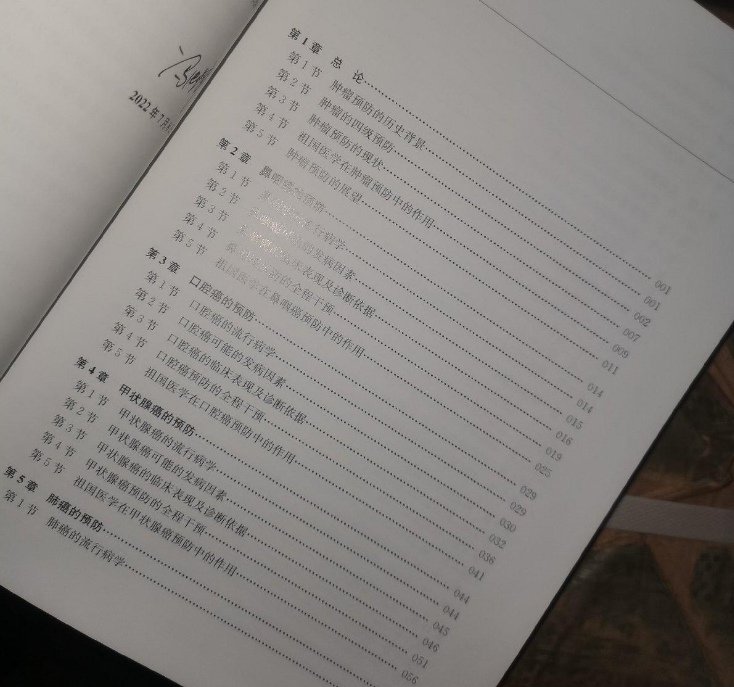 2022年7月
第1章 总 论 001
第1节 肿瘤预防的历史背景 001
第2节 肿瘤的四级预防 002
第3节 肿瘤预防的现状 007
第4节 祖国医学在肿瘤预防中的作用 009
第5节 肿瘤预防的展望 011
第2章 鼻咽癌的预防 014
第1节 鼻咽癌的流行病学 014
第2节 鼻咽癌可能的发病因素 015
第3节 鼻咽癌的临床表现及诊断依据 016
第4节 鼻咽癌预防的全程干预 019
第5节 祖国医学在鼻咽癌预防中的作用 025
第3章 口腔癌的预防 029
第1节 口腔癌的流行病学 029
第2节 口腔癌可能的发病因素 030
第3节 口腔癌的临床表现及诊断依据 032
第4节 口腔癌预防的全程干预 036
第5节 祖国医学在口腔癌预防中的作用 041
第4章 甲状腺癌的预防 044
第1节 甲状腺癌的流行病学 044
第2节 甲状腺癌可能的发病因素 045
第3节 甲状腺癌的临床表现及诊断依据 046
第4节 甲状腺癌预防的全程干预 051
第5节 祖国医学在甲状腺癌预防中的作用 056
第5章 肺癌的预防
第1节 肺癌的流行病学